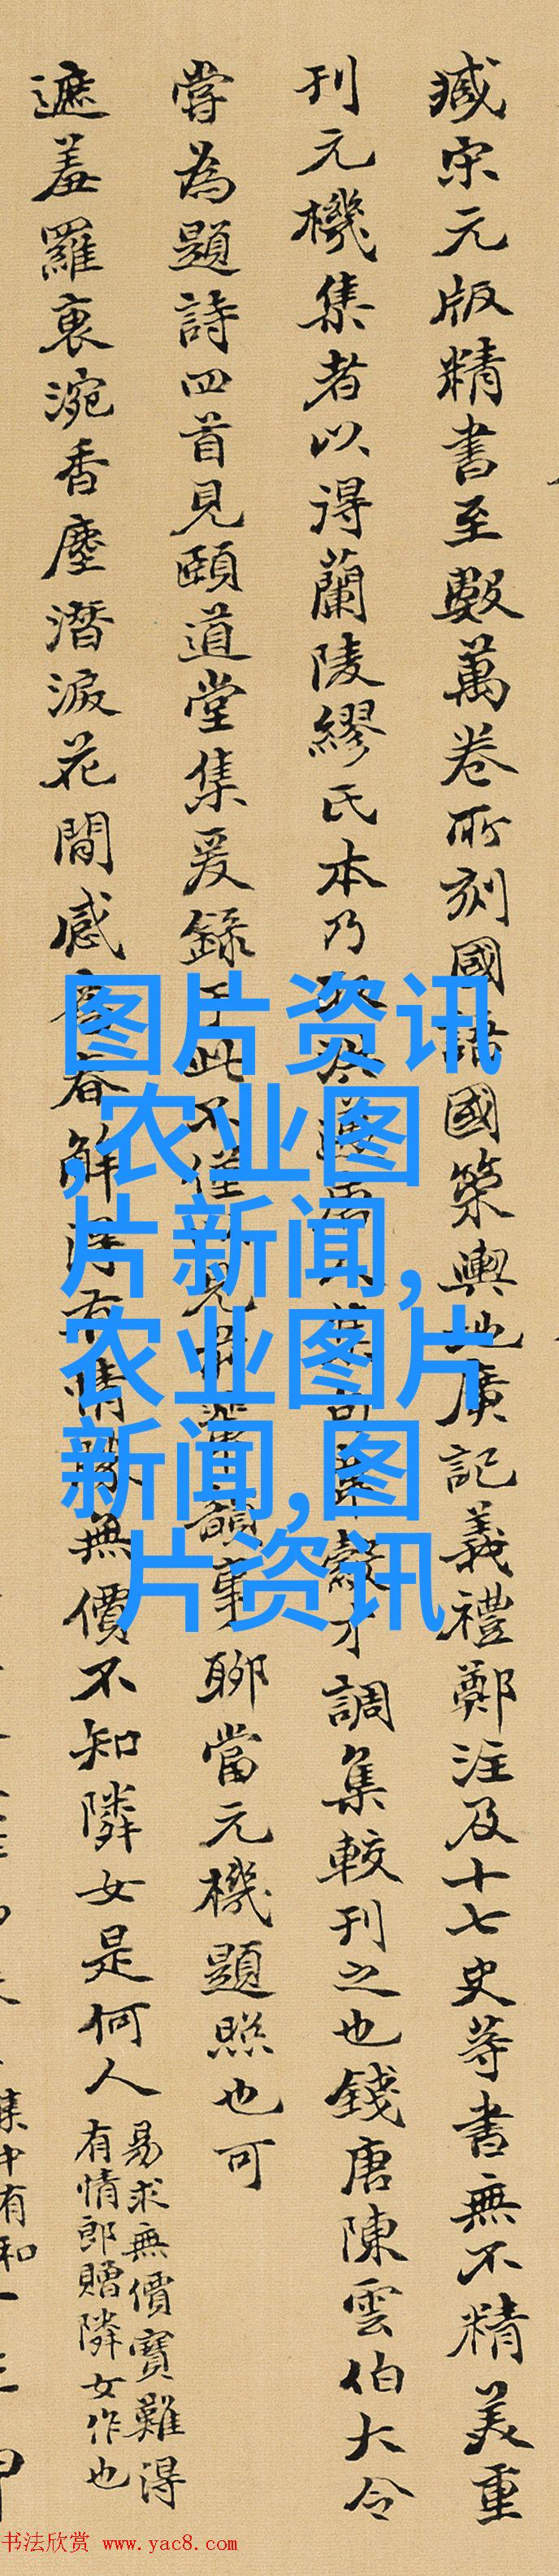 臧宋元版精書至數萬卷所刻國語國策輿地廣記義禮鄭注及十七史等書無不精美重
刊元機集者以得蘭陵繆氏本乃 調集較刊之也錢唐陳雲伯大令
嘗為題詩四首見頤道堂集爰錄于此不僅 見前輩韻事聊當元機題照也可
遮羞羅裏涴香塵潛淚花間感 春解得有情 無價不知隣女是何人
易求無價寶難得
有情郎贈隣女作也
集中有和
图片资讯
,农业图
片新闻,
农业图片
新闻,图
片资讯
书法欣赏 www.yac8.com